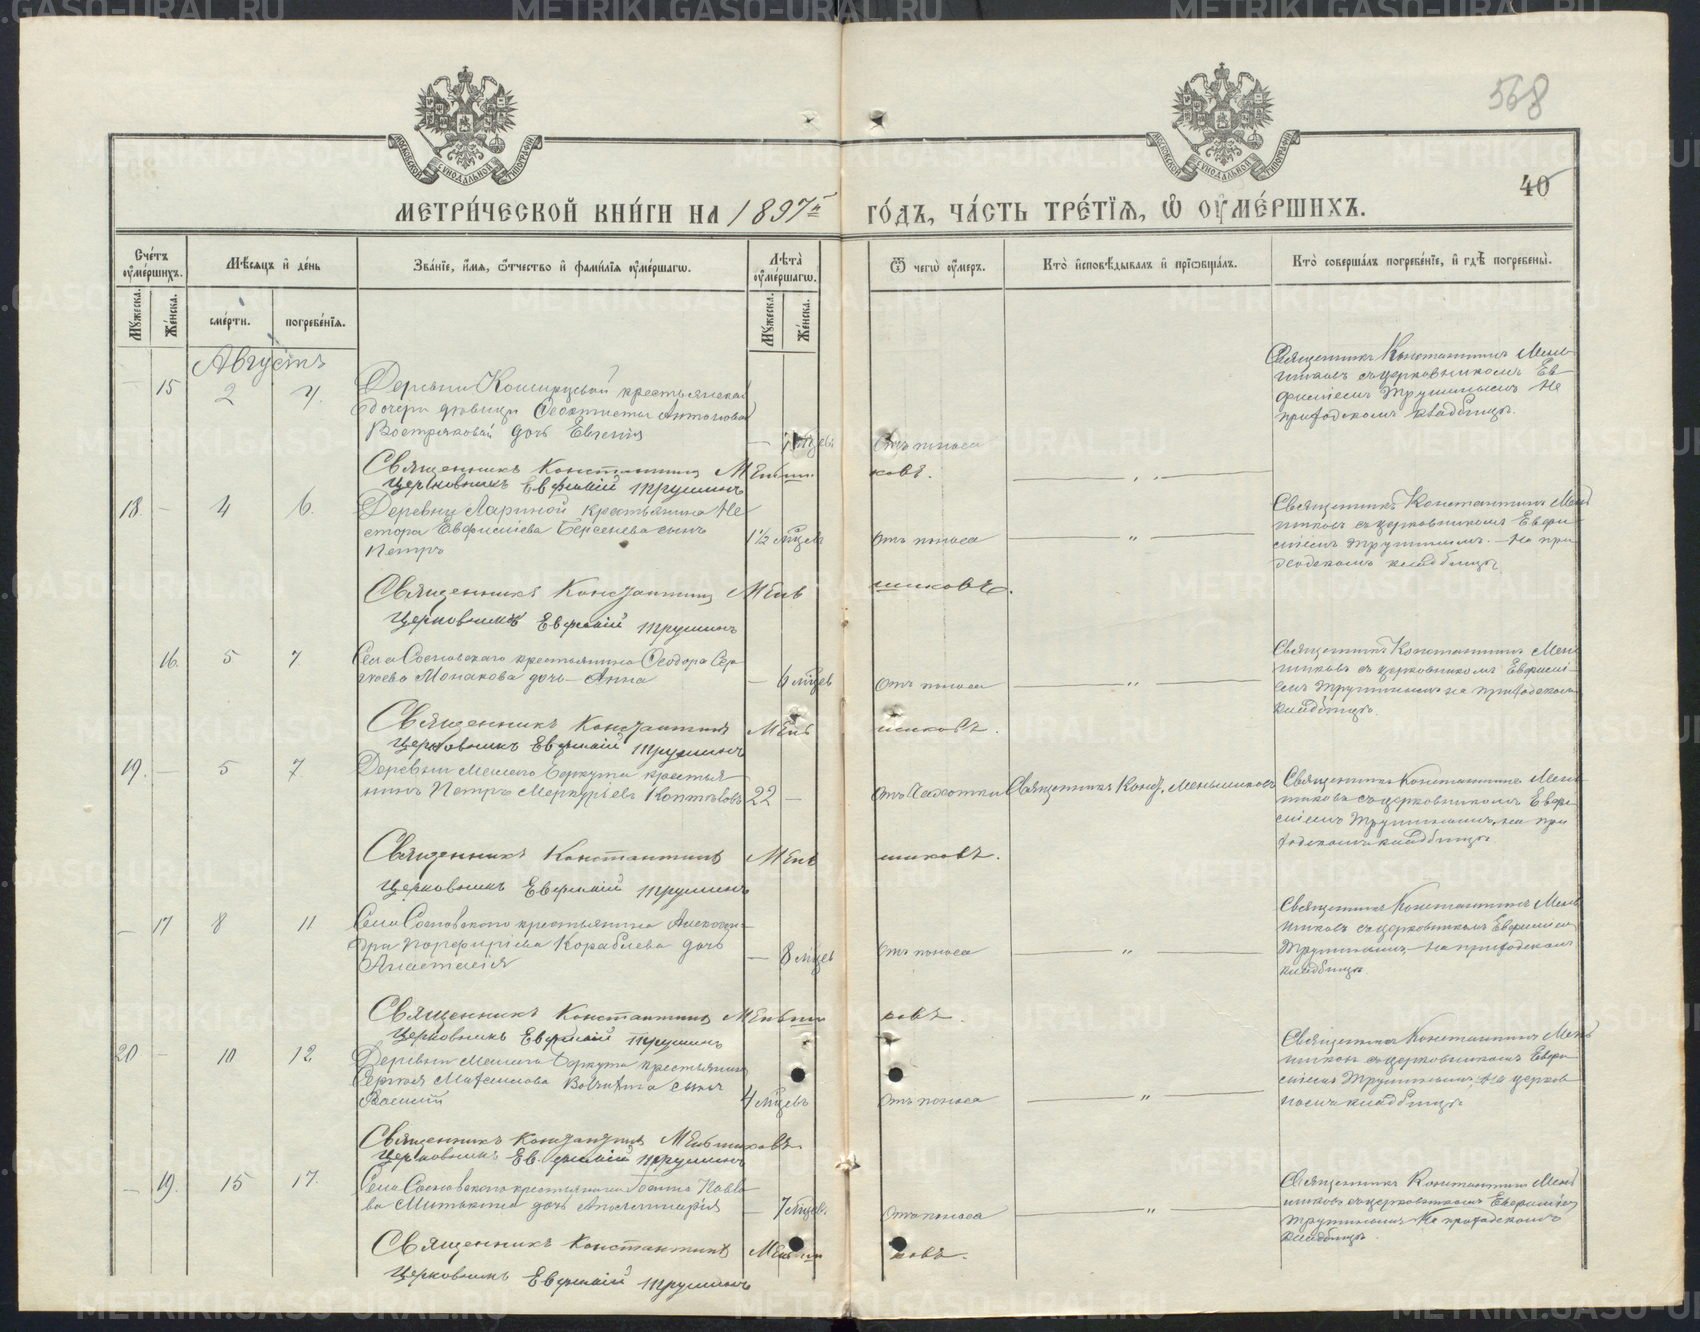 METRIKI.GASO-URAL.RU
568
40
МОСКОВСКОЙ СѴНОДАЛЬНОЙ ТИПОГРАФІИ
МОСКОВСКОЙ СѴНОДАЛЬНОЙ ТИПОГРАФІИ
МЕТРИ́ЧЕСКОЙ КНИ́ГИ НА 1897й ГО́ДЪ, ЧА́СТЬ ТРЕ́ТЇѦ, Ѡ҆ ОУ҆МЕ́РШИХЪ.
Сче́тъ оу҆ме́ршихъ.
Мѣ́сѧцъ и҆ де́нь
Зва́нїе, и҆́мѧ, ѻ҆́тчество и҆ фами́лїѧ оу҆ме́ршагѡ.
Лѣ́та оу҆ме́ршагѡ.
Ѿ чегѡ̀ оу҆́меръ.
Кто̀ и҆сповѣ́дывалъ и҆ прїѡбща́лъ.
Кто̀ соверша́лъ погребе́нїе, и҆ гдѣ̀ погребены̀.
Мꙋ́жеска.
Же́нска.
сме́рти.
погребе́нїѧ.
Мꙋ́жеска.
Же́нска.
Августъ
— 15 2 4
Деревни крестьянской
дочери дѣвицы Ѳеоктисты Антоновой
Востряковой дочь Евгенія
— Отъ поноса
Священникъ Константинъ Меньшиковъ съ церковникомъ Евфиміемъ Трушинымъ На приходскомъ кладбищѣ.
Священникъ Константинъ Меньшиковъ.
Церковникъ Евфимій Трушинъ
18. — 4 6.
Деревни Лариной крестьянина Нестора Евфиміева Берсенева сынъ
Петръ
1½ мѣцевъ Отъ поноса — „ —
Священникъ Константинъ Меньшиковъ съ церковникомъ Евфиміемъ Трушинымъ. — На приходскомъ кладбищѣ
Священникъ Константинъ Меньшиковъ.
Церковникъ Евфимій Трушинъ
16. 5 7
Села Сосновскаго крестьянина Ѳеодора Сергѣева Монакова дочь — Анна
— 6 мѣцевъ Отъ поноса — „ —
Священникъ Константинъ Меньшиковъ съ церковникомъ Евфиміемъ Трушинымъ на приходскомъ кладбищѣ.
Священникъ Константинъ Меньшиковъ.
Церковникъ Евфимій Трушинъ
19. — 5 7
Деревни Малаго Беркута крестьянинъ Петръ Меркурьевъ
22 — Отъ чахотки Священникъ Конст. Меньшиковъ
Священникъ Константинъ Меньшиковъ съ церковникомъ Евфиміемъ Трушинымъ, на приходскомъ кладбищѣ
Священникъ Константинъ Меньшиковъ.
Церковникъ Евфимій Трушинъ
— 17 8 11
Села Сосновскаго крестьянина Александра Порфиріева Кораблева дочь
Анастасія
— 8 мѣцевъ Отъ поноса — „ —
Священникъ Константинъ Меньшиковъ съ церковникомъ Евфиміемъ Трушинымъ, — На приходскомъ кладбищѣ
Священникъ Константинъ Меньшиковъ.
Церковникъ Евфимій Трушинъ
20 — 10 12
Деревни Малаго Беркута крестьянина
Сергѣя сынъ
Василій
4 мѣцевъ Отъ поноса — „ —
Священникъ Константинъ Меньшиковъ съ церковникомъ Евфиміемъ Трушинымъ, На кладбищѣ
Священникъ Константинъ Меньшиковъ
Церковникъ Евфимій Трушинъ
— 19. 15 17.
Села Сосновскаго крестьянина Іоанна Павлова Митькина дочь Аполлинарія
— 7 мѣцев. Отъ поноса — „ —
Священникъ Константинъ Меньшиковъ съ церковникомъ Евфиміемъ Трушинымъ На приходскомъ кладбищѣ.
Священникъ Константинъ Меньшиковъ.
Церковникъ Евфимій Трушинъ